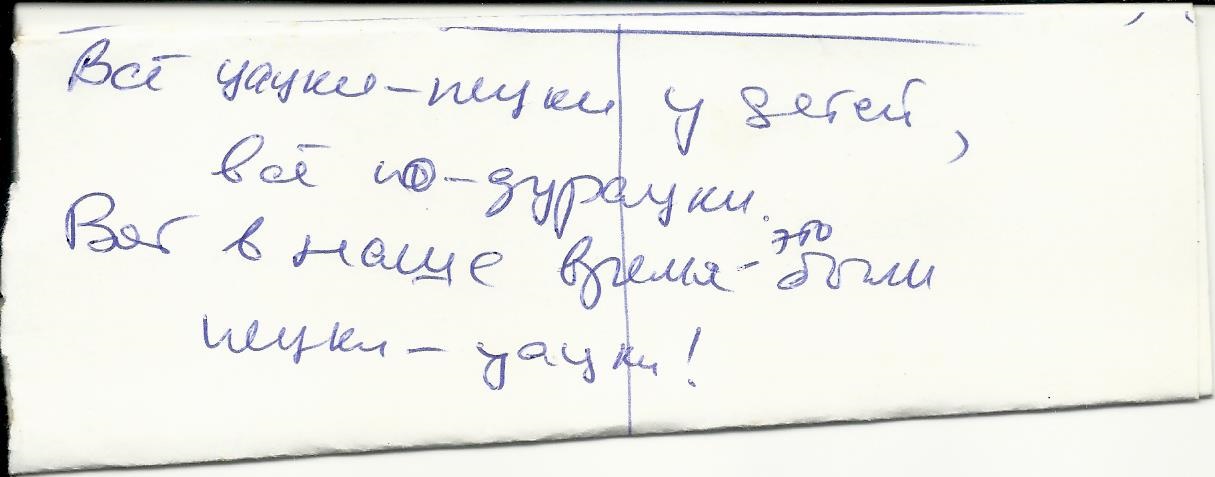 Всё цацки-пецки у детей,
всё по-дурацки.
Вот в наше время - это были
пецки - цацки!